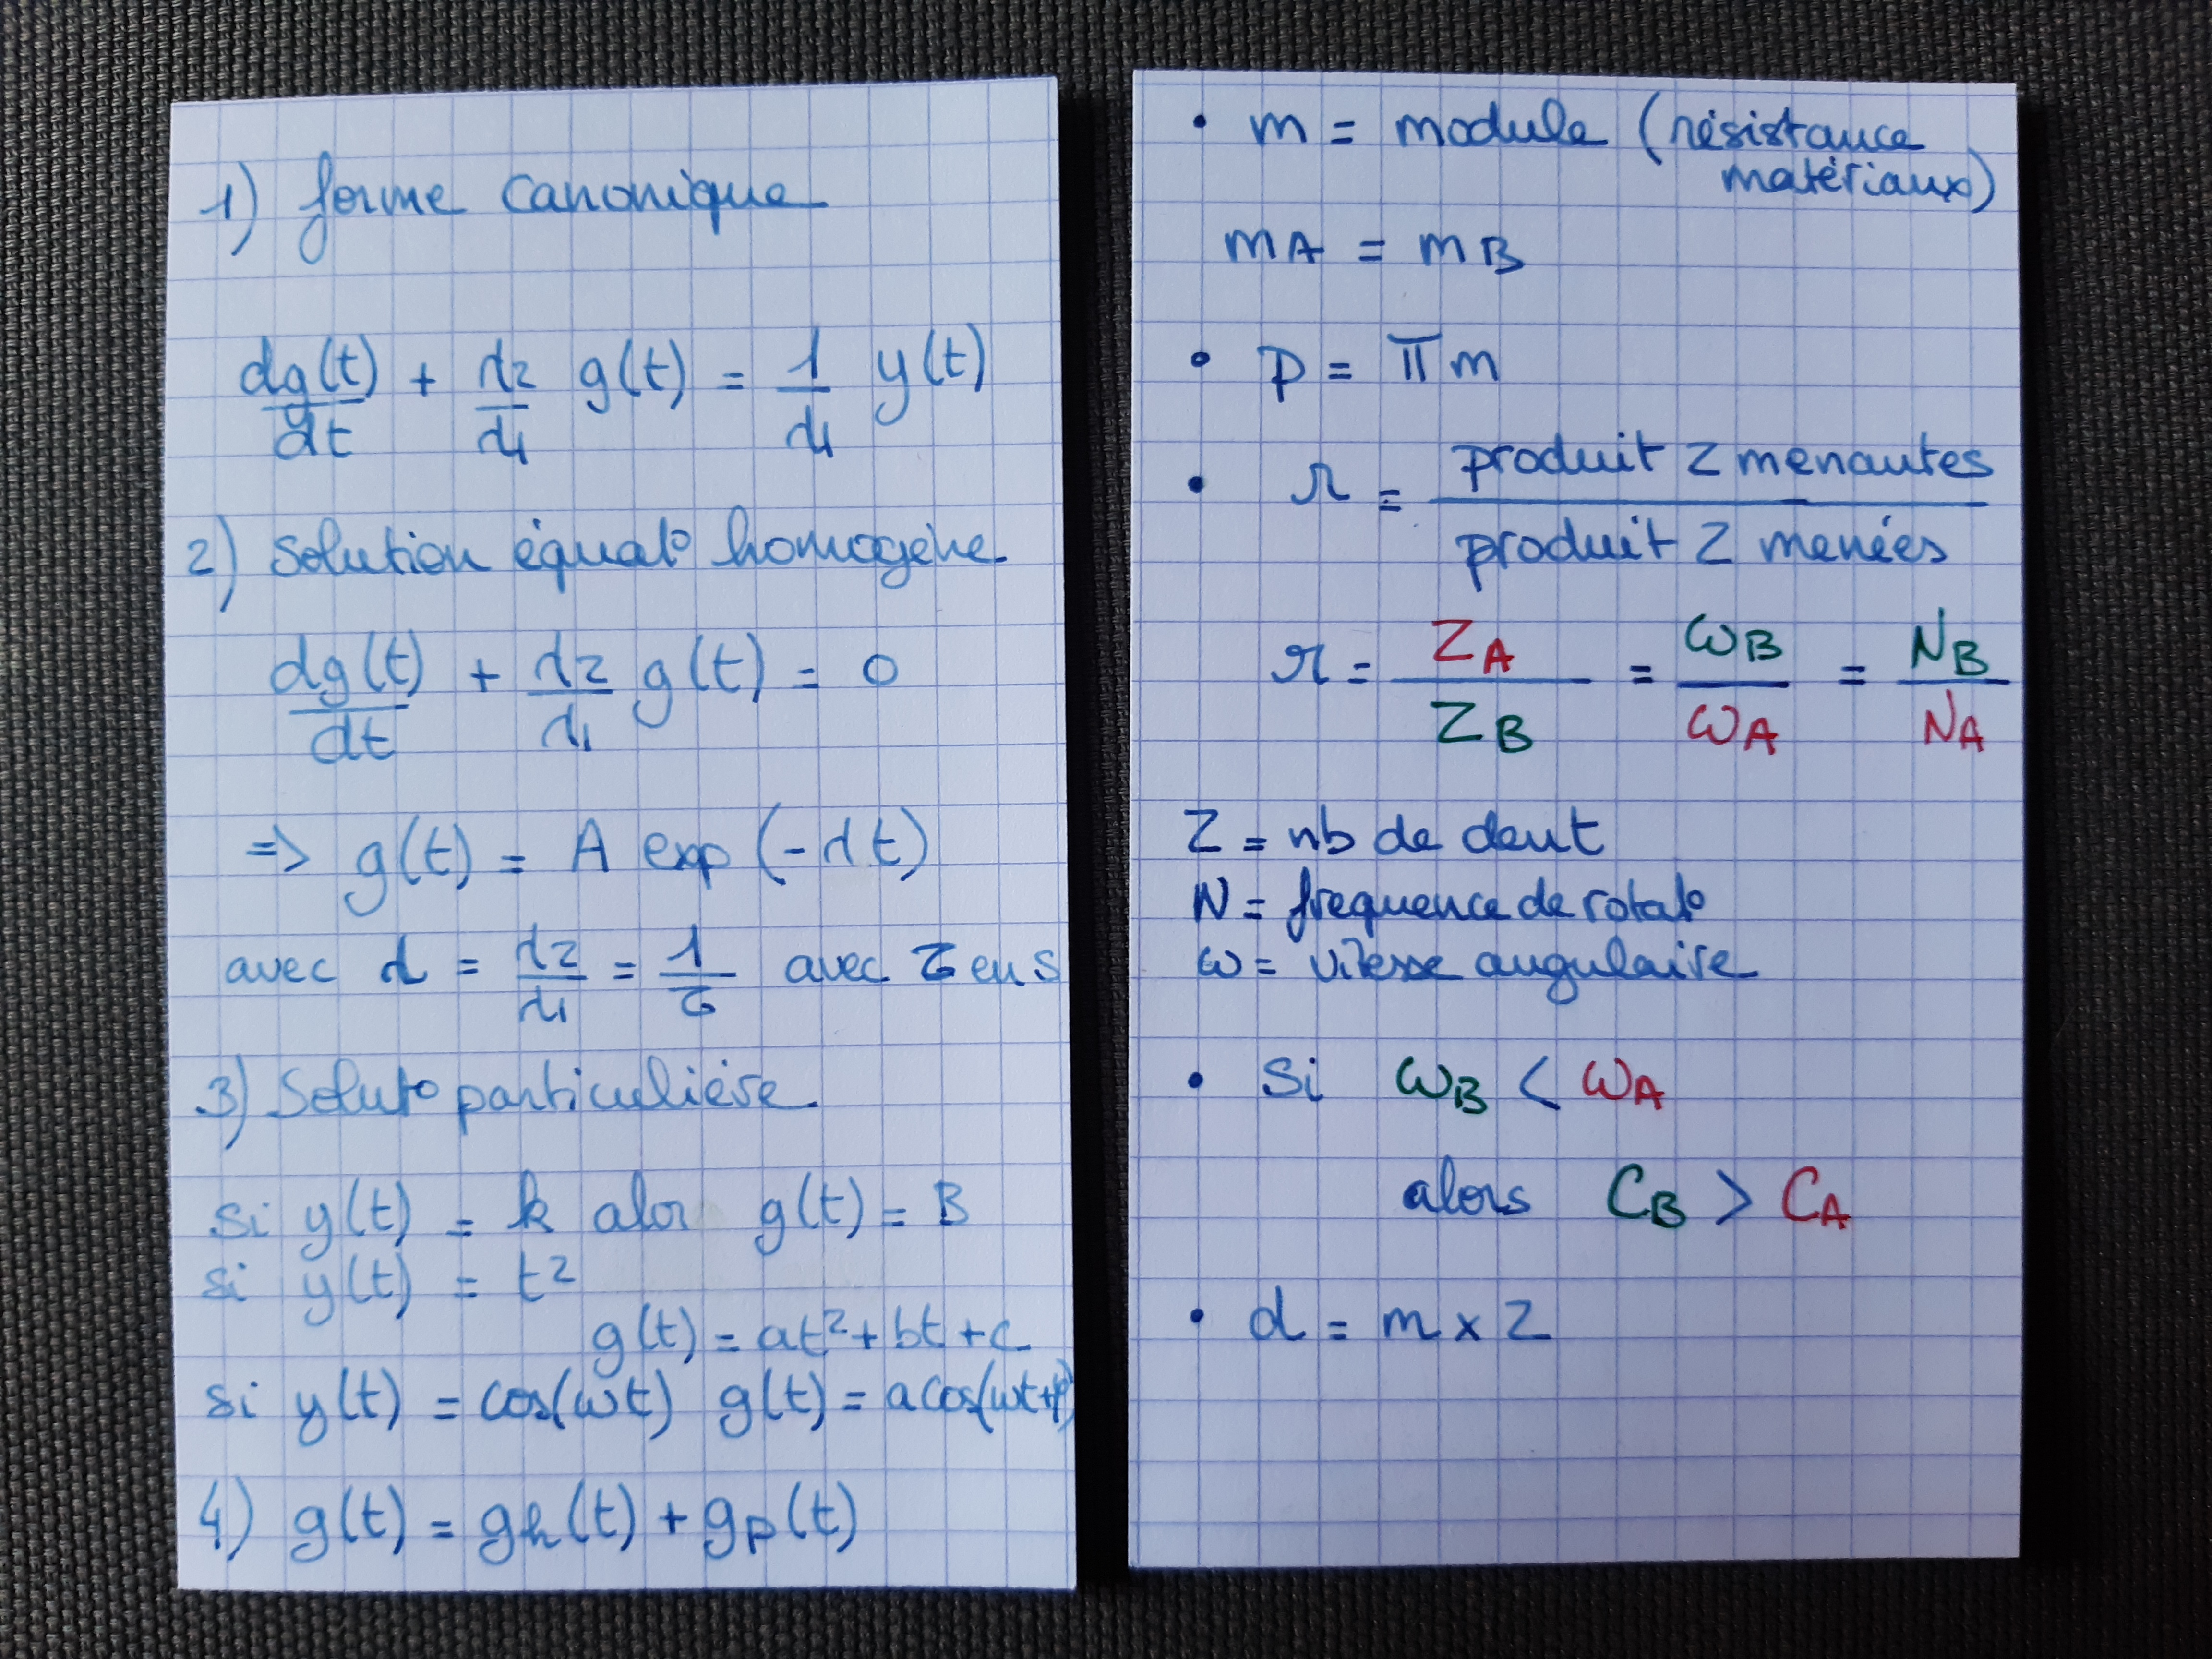 1) forme canonique
dg(t)/dt + λ2/λ1 g(t) = 1/λ1 y(t)
2) Solution équat° homogène
dg(t)/dt + λ2/λ1 g(t) = 0
=> g(t) = A exp (-λt)
avec λ = λ2/λ1 = 1/τ avec τ en s
3) Solut° particulière
si y(t) = k alor g(t) = B
si y(t) = t²
g(t) = at² + bt + c
si y(t) = cos(ωt) g(t) = a cos(ωt+φ)
4) g(t) = gh(t) + gp(t)
• m = module (résistance
matériaux)
mA = mB
• p = πm
• r = produit Z menantes / produit Z menées
r = ZA/ZB = ωB/ωA = NB/NA
Z = nb de dent
N = frequence de rotat°
ω = vitesse angulaire
• Si ωB < ωA
alors CB > CA
• d = m x Z